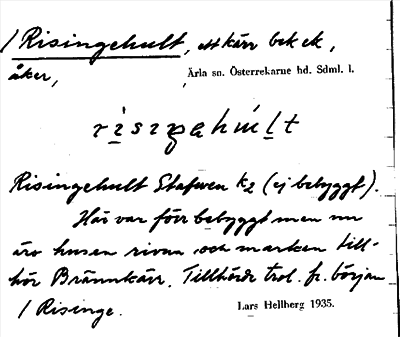 / Risingehult, ett kärr bek ek,
åker, Ärla sn. Österrekarne hd. Sdml. l.
Risingehult Stafwen k2 (ej bebyggt).
Här var förr bebyggt men nu
äro husen rivna och marken till-
hör Brännkärr. Tillhörde trol. fr. början
/ Risinge. Lars Hellberg 1935.